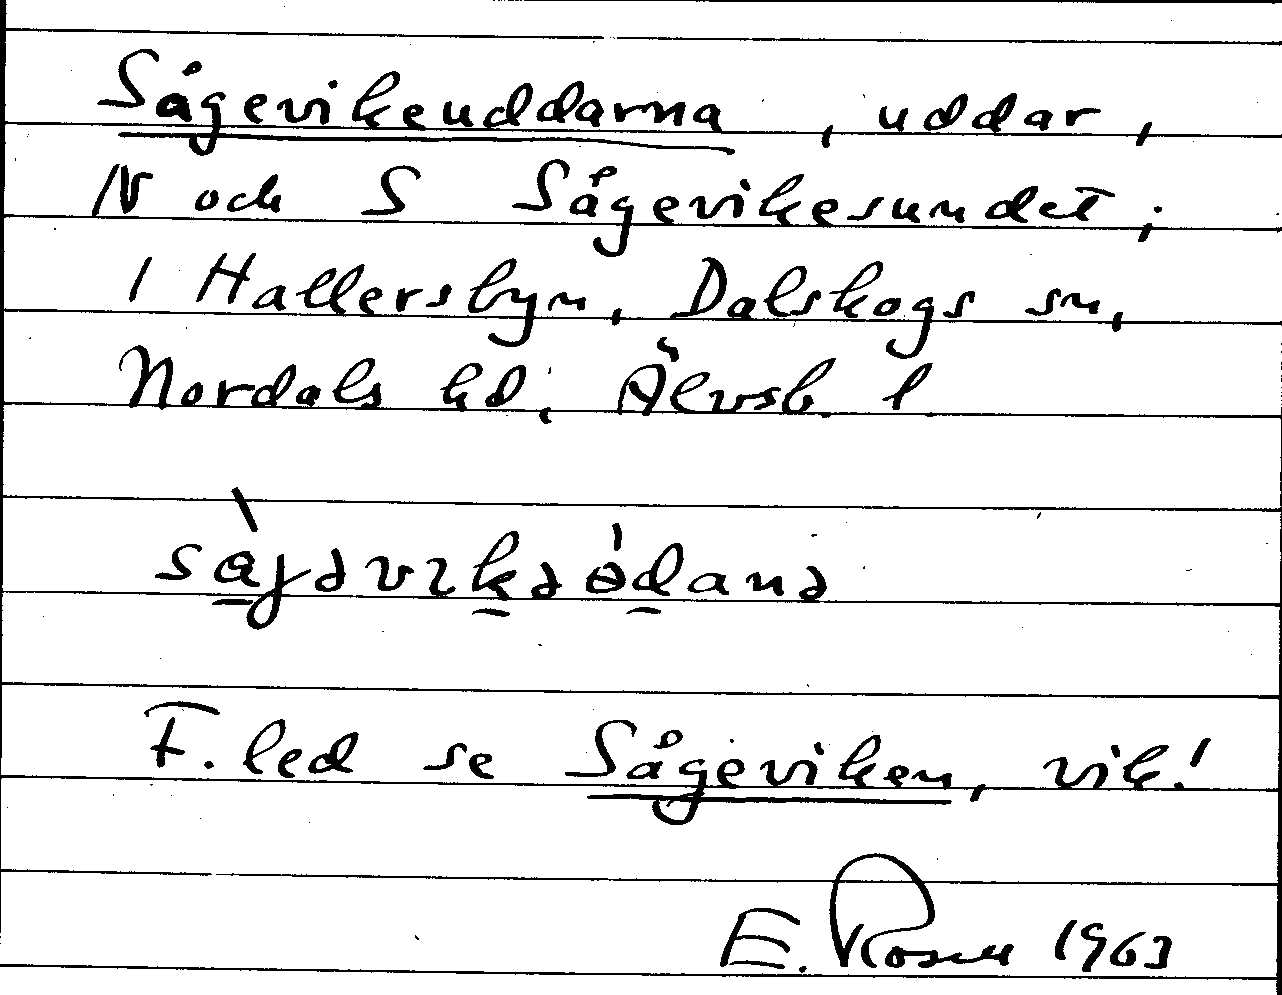 Sågevikeuddarna, uddar,
N och S Sågevikesundet;
i Hallersbyn, Dalskogs sn,
Nordals hd, Älvsb. l
sàjǝvikǝòdanǝ
F. led se Sågeviken, vik!
E. Rosell 1963